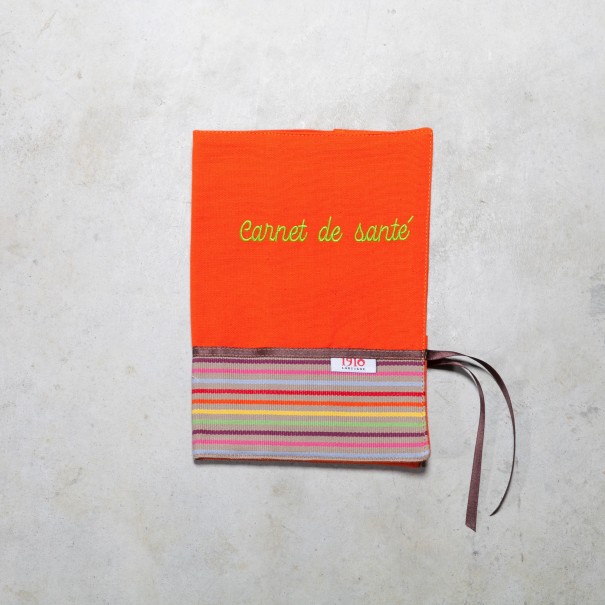 Carnet de santé
1918